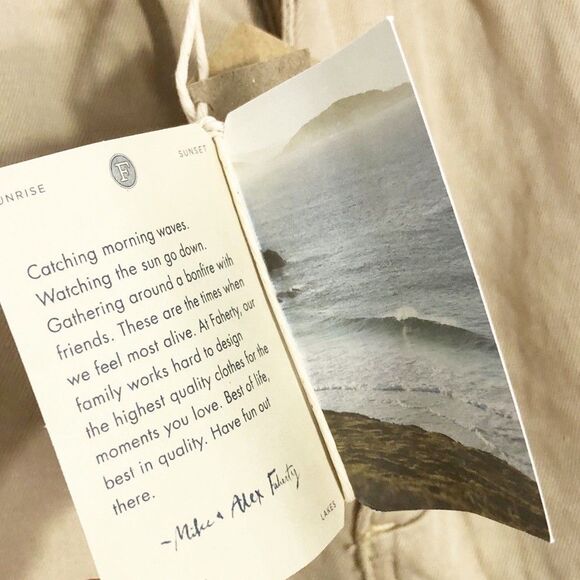 UNRISE
F
SUNSET
Catching morning waves.
Watching the sun go down.
Gathering around a bonfire with
friends. These are the times when
we feel most alive. At Faherty, our
family works hard to design
the highest quality clothes for the
moments you love. Best of life,
best in quality. Have fun out
there.
~Mike & Alex Faherty
LAKES